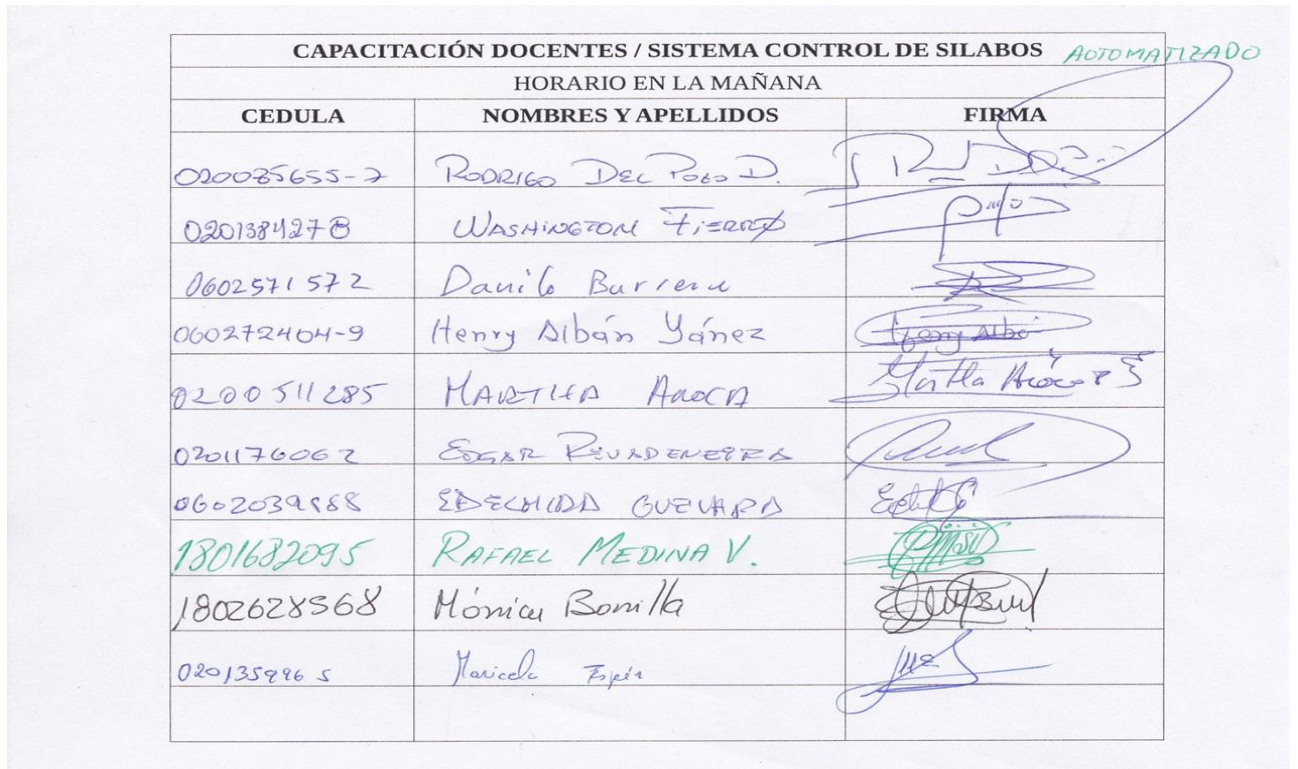 CAPACITACIÓN DOCENTES / SISTEMA CONTROL DE SILABOS AUTOMATIZADO
HORARIO EN LA MAÑANA
CEDULA NOMBRES Y APELLIDOS FIRMA
RODRIGO DEL POZO D.
0201384278 WASHINGTON FIERRO
0602571572 Danilo Barrera
060272404-9 Henry Albán Yánez Henry Albá
0200511285 MARTHA AROCA Martha
0201176062 EDGAR RIVADENEIRA
EDELMIRA GUEVARA
1801682095 RAFAEL MEDINA V.
1802628568 Mónica Bonilla
Maricela Espín